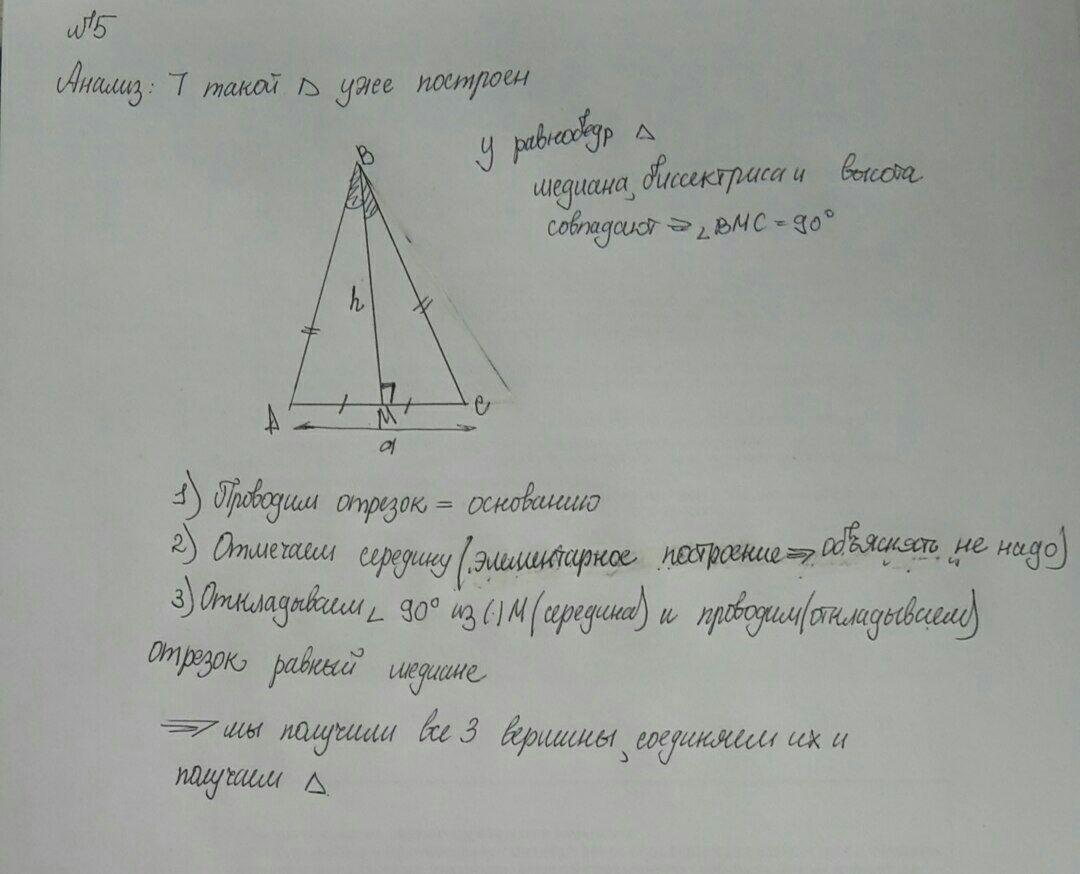 №5
Анализ: ⅂ такой △ уже построен
У равнобедр △
медиана, биссектриса и высота
совпадают ⇒ ∠BMC = 90°
B
h
A
M
C
a
1) Проводим отрезок = основанию
2) Отмечаем середину (элементарное построение ⇒ объяснять не надо)
3) Откладываем ∠ 90° из (·) M (середина) и проводим (откладываем)
отрезок равный медиане
⇒ мы получили все 3 вершины, соединяем их и
получаем △